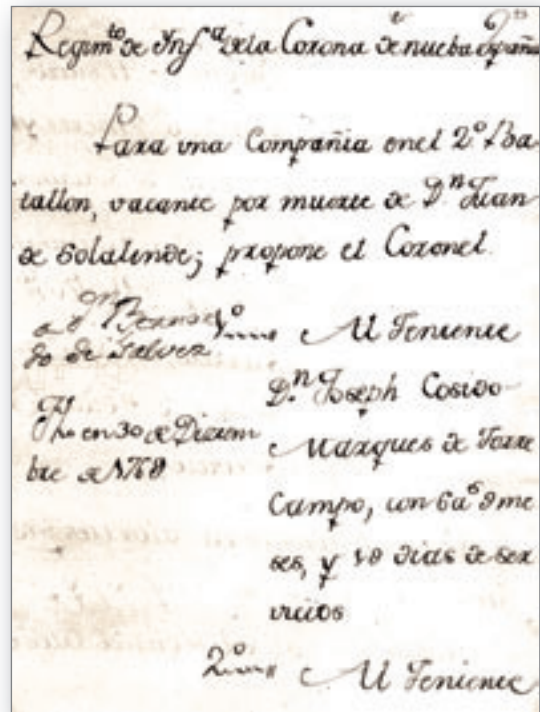 Regim.to de Inf.a de la Corona de nueba España
Para una Compañia en el 2.o Ba-
tallon, vacante por muerte de D.n Juan
de Solalinde; propone el Coronel.
a D.n Bernar
do de Galvez
Fho en 30 de Diziem
bre de 1768
1.o Al Teniente
D.n Joseph Cosido
Marques de Torre
Campo, con 6 a.s 9 me
ses, y 18 dias de ser
vicios
2.o Al Teniente